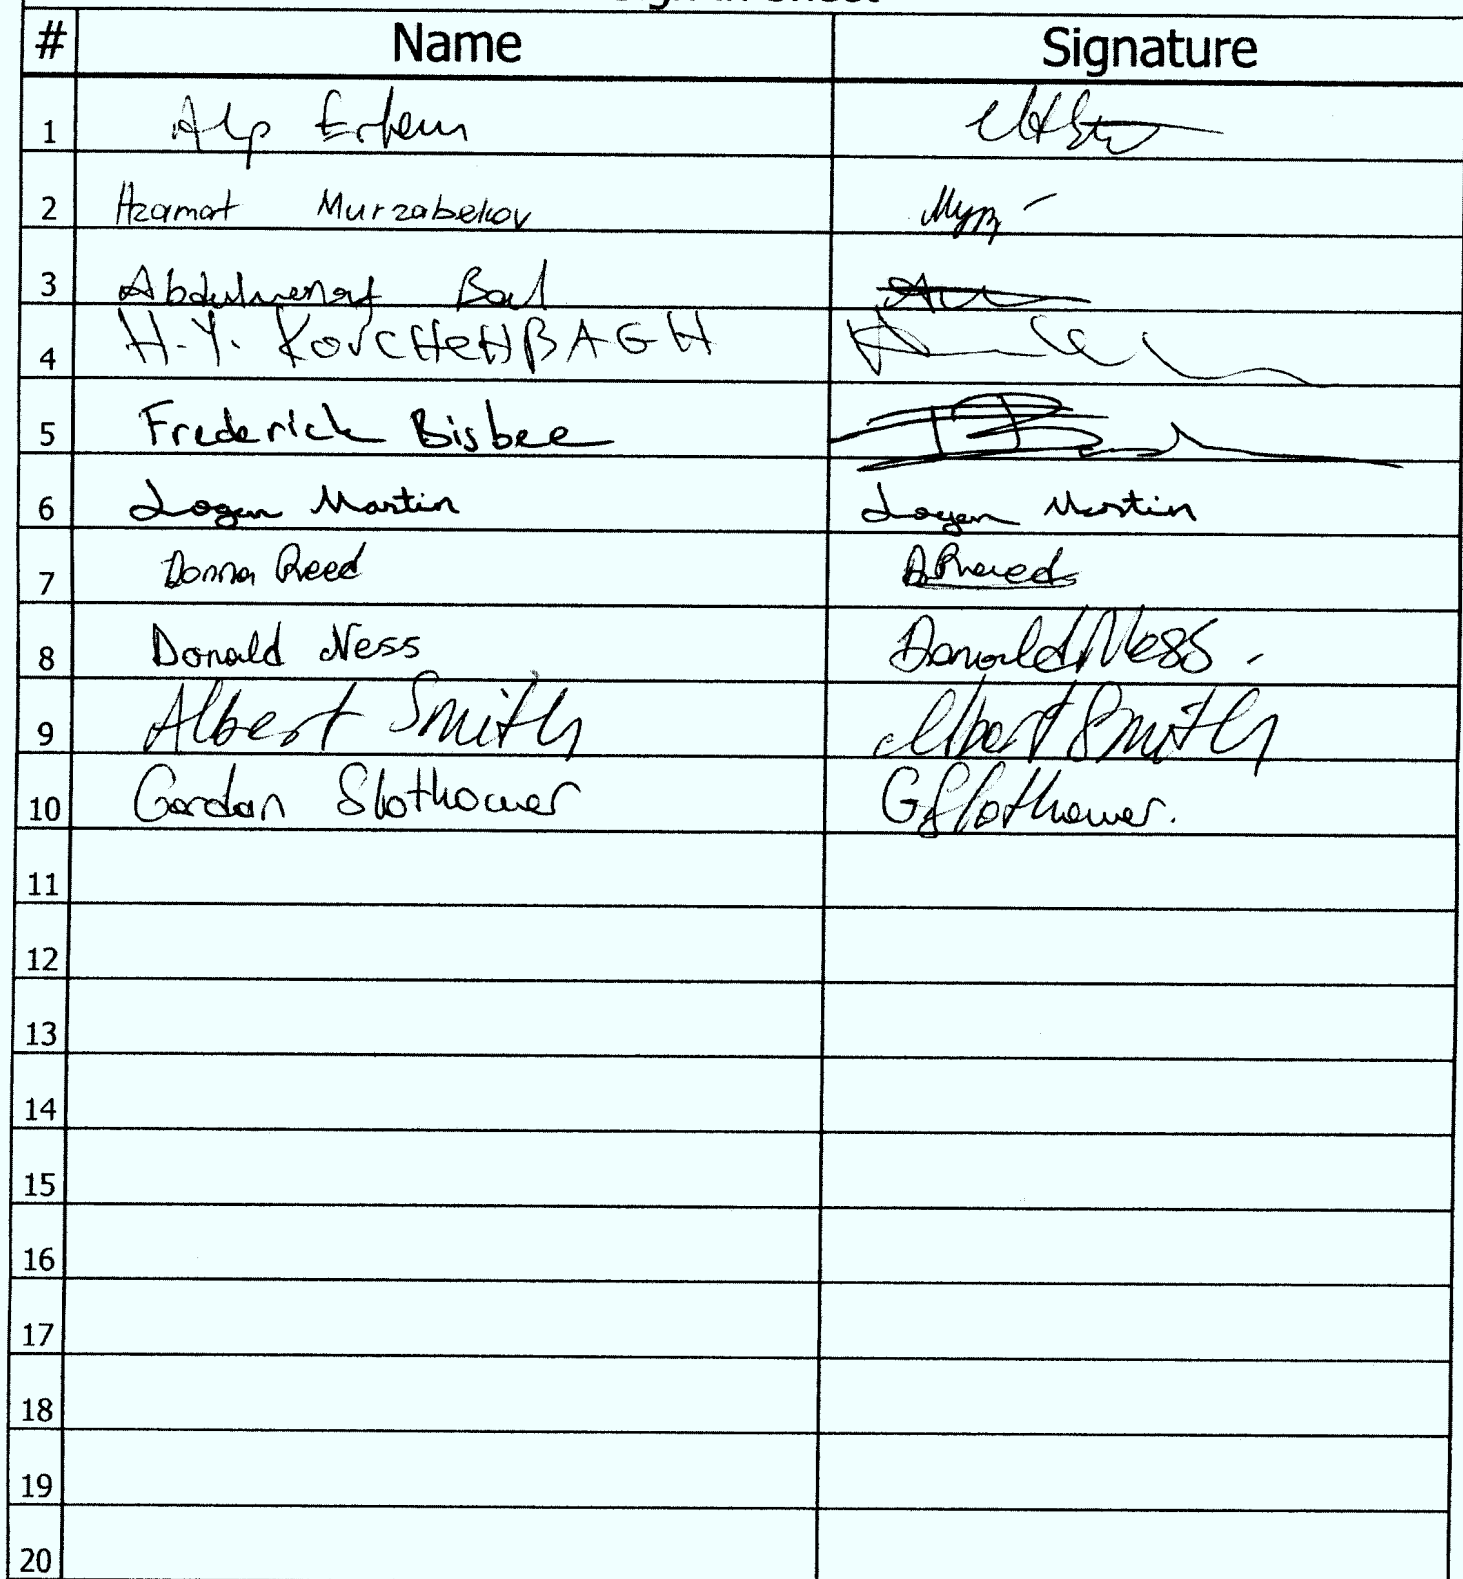 # Name Signature
1 Alp Ertem
2 Azamat Murzabekov
3 Abdulmenaf Bal
4 H.Y. KovcHeHBAGH
5 Frederick Bisbee
6 Logan Martin Logan Martin
7 Donna Reed
8 Donald Ness Donald Ness.
9 Albert Smith Albert Smith
10 Gordon Slothower GSlothower.
11
12
13
14
15
16
17
18
19
20